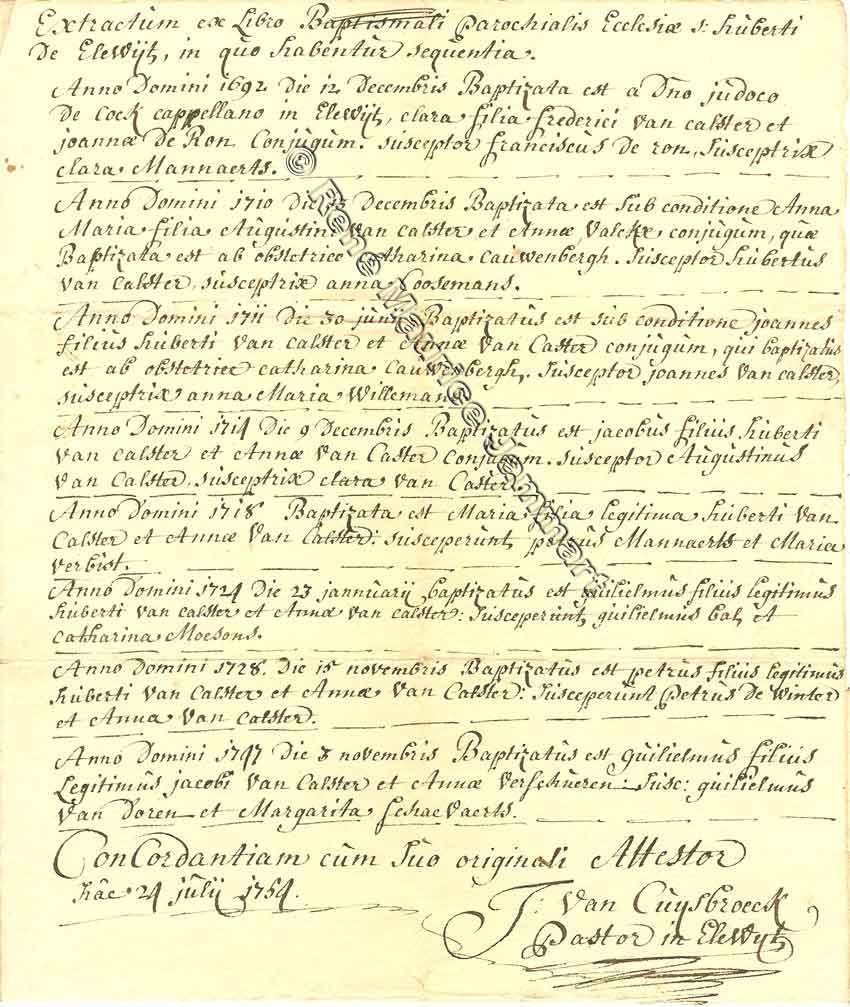 Extractum ex Libro Baptismali Parochialis Ecclesiæ s: Huberti
De Elewijt, in quo habentur sequentia.
Anno Domini 1692 Die 12 Decembris Baptizata est a Dno judoco
De Cock cappellano in Elewijt, clara filia frederici van calster et
joannæ De Ron Conjugum. susceptor franciscus de ron, susceptrix
clara Mannaerts.
Anno Domini 1710 Die Decembris Baptizata est sub conditione Anna
Maria filia Augustini van calster et Annæ Valckx conjugum, quæ
Baptizata est ab obstetrice Catharina Cauwenbergh. susceptor Hubertus
van Calster, susceptrix anna Coosemans.
Anno Domini 1711 Die 30 junii Baptizatus est sub conditione joannes
filius Huberti van calster et Annæ Van Caster conjugum, qui baptizatus
est ab obstetrice catharina Cauwenbergh. susceptor joannes van calster,
susceptrix anna Maria Willemans
Anno Domini 1714 Die 9 Decembris Baptizatus est jacobus filius Huberti
van calster et Annæ van Caster Conjugum. susceptor Augustinus
van Calster, susceptrix clara van Caster.
Anno Domini 1718 Baptizata est Maria filia legitima Huberti Van
Calster et Annæ Van Calster: susceperunt petrus Mannaerts et Maria
verbist.
Anno Domini 1724 Die 23 jannuarij baptizatus est guilielmus filius legitimus
Huberti van calster et Annæ van calster: susceperunt guilielmus bal et
catharina Moesons.
Anno Domini 1728. Die 15 novembris Baptizatus est petrus filius legitimus
Huberti Van Calster et Annæ Van Calster: susceperunt Petrus De Winter
et Anna Van Calster.
Anno Domini 1747 Die 8 novembris Baptizatus est guilielmus filius
Legitimus jacobi Van Calster et Annæ Verschueren: susc: guilielmus
Van Doren et Margarita schaevaerts.
ConCordantiam cum suo originali Attestor
hâc 24 julij 1754.
J: Van Cuysbroeck
Pastor in Elewijt
© René Maurice Jaminart